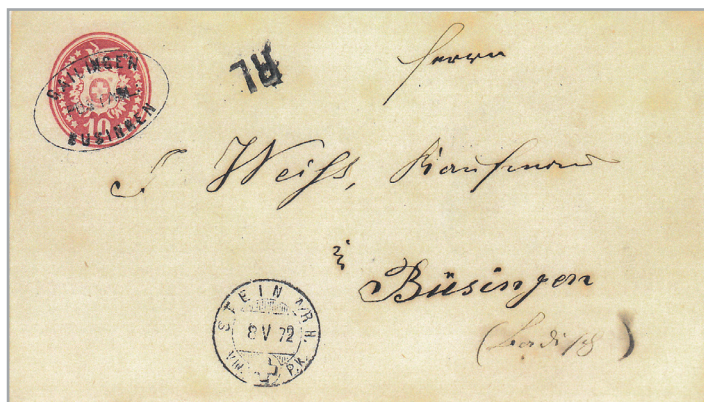 GAILINGEN
10
BUSINGEN
RL
Herrn
J Weiss, Kaufmann
in
Büsingen
STEIN A/RH.
8 V 72